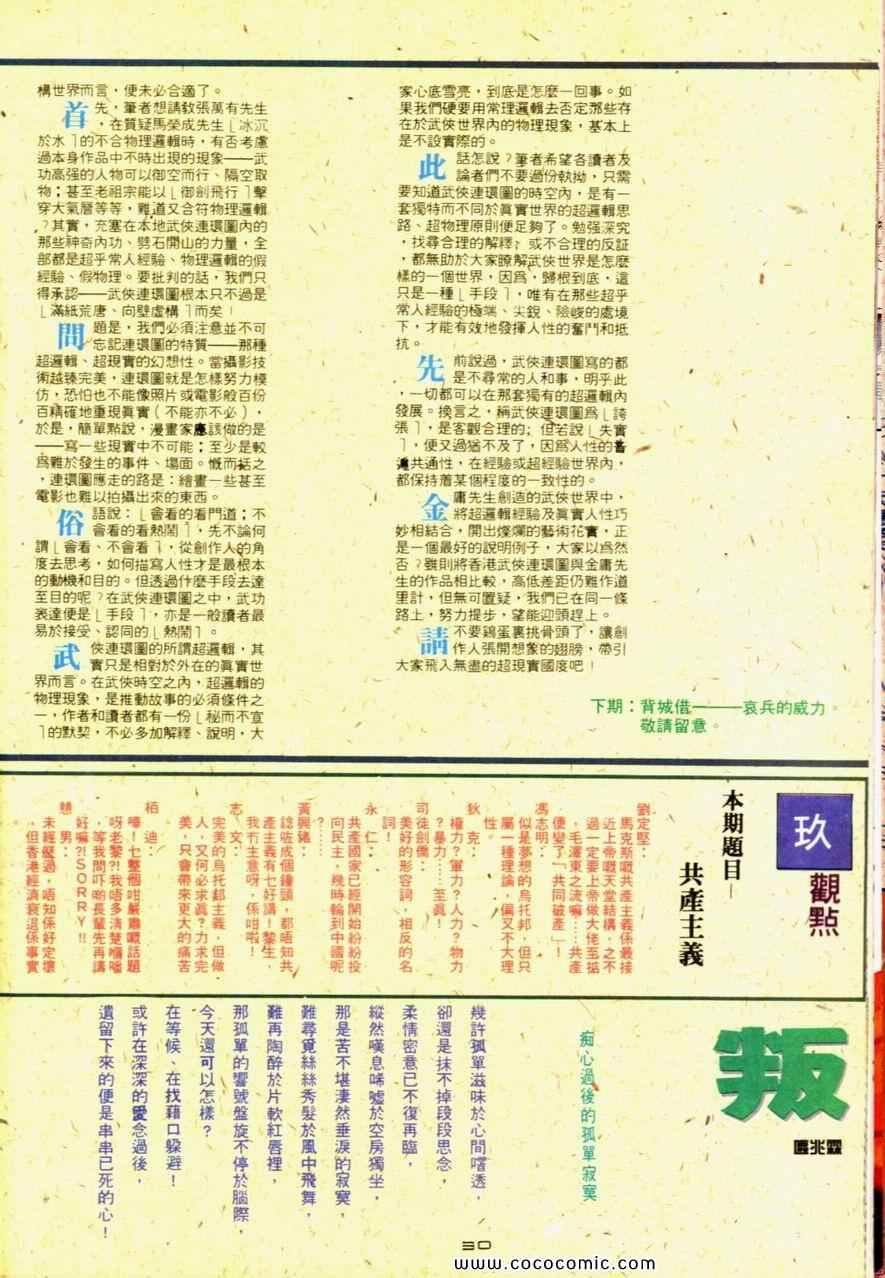 構世界而言，便未必合適了。
首先，筆者想請敎張萬有先生
，在質疑馬榮成先生「冰沉
於水」的不合物理邏輯時，有否考慮
過本身作品中不時出現的現象——武
功高强的人物可以御空而行、隔空取
物；甚至老祖宗能以「御劍飛行」擊
穿大氣層等等，難道又合符物理邏輯
？其實，充塞在本地武俠連環圖內的
那些神奇內功、劈石開山的力量，全
部都是超乎常人經驗、物理邏輯的假
經驗、假物理。要批判的話，我們只
得承認——武俠連環圖根本只不過是
「滿紙荒唐、向壁虛構」而矣！
問題是，我們必須注意並不可
忘記連環圖的特質——那種
超邏輯、超現實的幻想性。當攝影技
術越臻完美，連環圖就是怎樣努力模
仿，恐怕也不能像照片或電影般百份
百精確地重現眞實（不能亦不必），
於是，簡單點說，漫畫家應該做的是
——寫一些現實中不可能；至少是較
爲難於發生的事件、場面。慨而括之
，連環圖應走的路是：繪畫一些甚至
電影也難以拍攝出來的東西。
俗語說：「會看的看門道；不
會看的看熱鬧」，先不論何
謂「會看、不會看」，從創作人的角
度去思考，如何描寫人性才是最根本
的動機和目的。但透過什麼手段去達
至目的呢？在武俠連環圖之中，武功
表達便是「手段」，亦是一般讀者最
易於接受、認同的「熱鬧」。
武俠連環圖的所謂超邏輯，其
實只是相對於外在的眞實世
界而言。在武俠時空之內，超邏輯的
物理現象，是推動故事的必須條件之
一，作者和讀者都有一份「秘而不宣
」的默契，不必多加解釋、說明，大
家心底雪亮，到底是怎麼一回事。如
果我們硬要用常理邏輯去否定那些存
在於武俠世界內的物理現象，基本上
是不設實際的。
此話怎說？筆者希望各讀者及
論者們不要過份執拗，只需
要知道武俠連環圖的時空內，是有一
套獨特而不同於眞實世界的超邏輯思
路、超物理原則便足夠了。勉强深究
，找尋合理的解釋；或不合理的反証
，都無助於大家瞭解武俠世界是怎麼
樣的一個世界，因爲，歸根到底，這
只是一種「手段」，唯有在那些超乎
常人經驗的極端、尖銳、險峻的處境
下，才能有效地發揮人性的奮鬥和抵
抗。
先前說過，武俠連環圖寫的都
是不尋常的人和事，明乎此
，一切都可以在那套獨有的超邏輯內
發展。換言之，稱武俠連環圖爲「誇
張」，是客觀合理的；但若說「失實
」，便又過猶不及了，因爲人性的
共通性，在經驗或超經驗世界內，
都保持着某個程度的一致性的。
金庸先生創造的武俠世界中，
將超邏輯經驗及眞實人性巧
妙相結合，開出燦爛的藝術花實，正
是一個最好的說明例子，大家以爲然
否？雖則將香港武俠連環圖與金庸先
生的作品相比較，高低差距仍難作道
里計，但無可置疑，我們已在同一條
路上，努力提步，望能迎頭趕上。
請不要鷄蛋裏挑骨頭了，讓創
作人張開想象的翅膀，帶引
大家飛入無盡的超現實國度吧！
下期：背城借一——哀兵的威力。
敬請留意。
玖觀點
本期題目—
共產主義
劉定堅：
馬克斯嘅共產主義係最接
近上帝嘅天堂結構，之不
過一定要上帝做大佬至掂
，毛澤東之流嘛……共產
便變了「共同破產」！
馮志明：
似是夢想的烏托邦，但只
屬一種理論，偏又不大理
性。
狄克：
權力？軍力？人力？物力
？暴力……至眞！
司徒劍僑：
美好的形容詞，相反的名
詞！
永仁：
共產國家已經開始紛紛投
向民主，幾時輪到中國呢
？……
黃興豬：
諗咗成個鐘頭，都唔知共
產主義有乜好講！黎生，
我冇主意呀，係咁啦！
志文：
完美的烏托邦主義，但做
人，又何必求眞？力求完
美，只會帶來更大的痛苦
。
柏迪：
嘩！乜整個咁嚴肅嘅話題
呀老黎?!我唔多清楚嗰
，等我問吓啲長輩先再講
好嘛?!SORRY!!
戇男：
未經驗過，唔知係好定壞
，但香港經濟衰退係事實
叛
區兆霖
痴心過後的孤單寂寞
幾許孤單滋味於心間嚐透，
卻還是抹不掉段段思念，
柔情密意已不復再臨，
縱然嘆息唏噓於空房獨坐，
那是苦不堪淒然垂淚的寂寞，
難尋覓絲絲秀髮於風中飛舞，
難再陶醉於片軟紅唇裡，
那孤單的響號盤旋不停於腦際，
今天還可以怎樣？
在等候、在找藉口躲避！
或許在深深的愛念過後，
遺留下來的便是串串已死的心！
30
www.cococomic.com